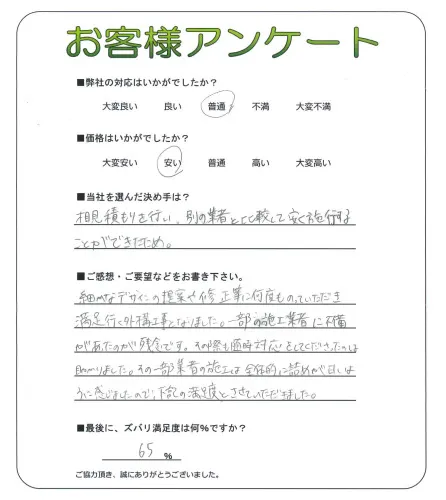 お客様アンケート
■弊社の対応はいかがでしたか？
大変良い 良い 普通 不満 大変不満
■価格はいかがでしたか？
大変安い 安い 普通 高い 大変高い
■当社を選んだ決め手は？
相見積もりを行い、別の業者と比較して安く施行する
ことができたため。
■ご感想・ご要望などをお書き下さい。
細かなデザインの提案や修正案に何度ものっていただき
満足行く外構工事となりました。一部の施工業者に不備
があったのが残念です。その際も随時対応をしてくださったのは
助かりました。その一部業者の施工は全体的に詰めが甘いよ
うに感じましたので、下記の満足度とさせていただきました。
■最後に、ズバリ満足度は何％ですか？
65 %
ご協力頂き、誠にありがとうございました。